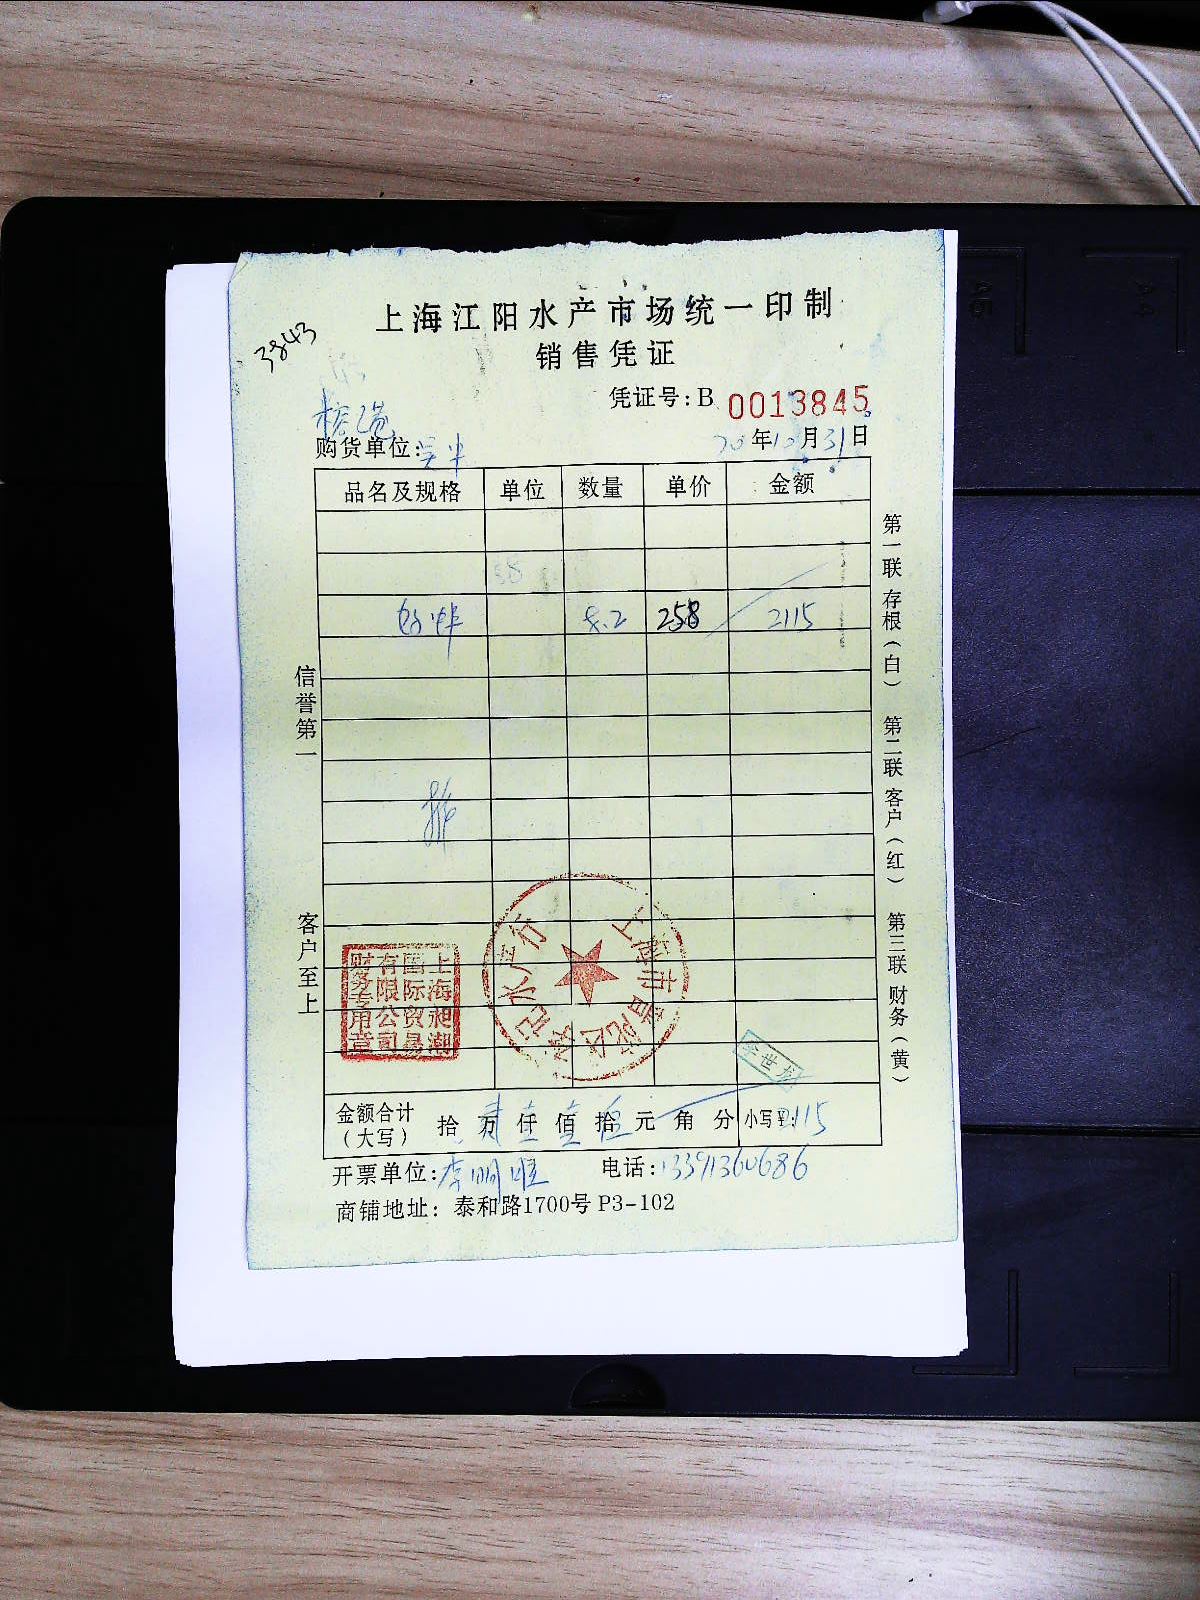 上海江阳水产市场统一印制
销售凭证
3843
凭证号:B 0013845
购货单位:
20年12月31日
品名及规格 单位 数量 单价 金额
8.2 258 2115
信誉第一
客户至上
第一联 存根(白) 第二联 客户(红) 第三联 财务(黄)
上海昶潮国际贸易有限公司财务专用章
金额合计(大写) 拾 万 仟 佰 拾 元 角 分 小写¥:2115
开票单位:李明旺 电话:13391360686
商铺地址: 泰和路1700号 P3-102